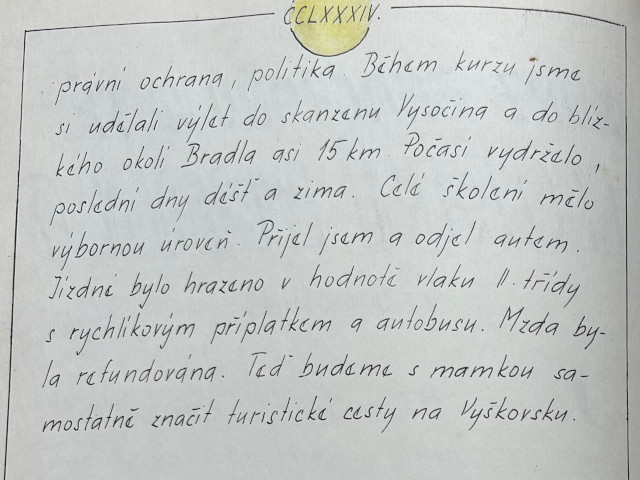 CCLXXXIV.
právní ochrana, politika. Během kurzu jsme
si udělali výlet do skanzenu Vysočina a do blíz-
kého okolí Bradla asi 15 km. Počasí vydrželo,
poslední dny déšť a zima. Celé školení mělo
výbornou úroveň. Přijel jsem a odjel autem.
Jízdné bylo hrazeno v hodnotě vlaku II. třídy
s rychlíkovým příplatkem a autobusu. Mzda by-
la refundována. Teď budeme s mamkou sa-
mostatně značit turistické cesty na Vyškovsku.